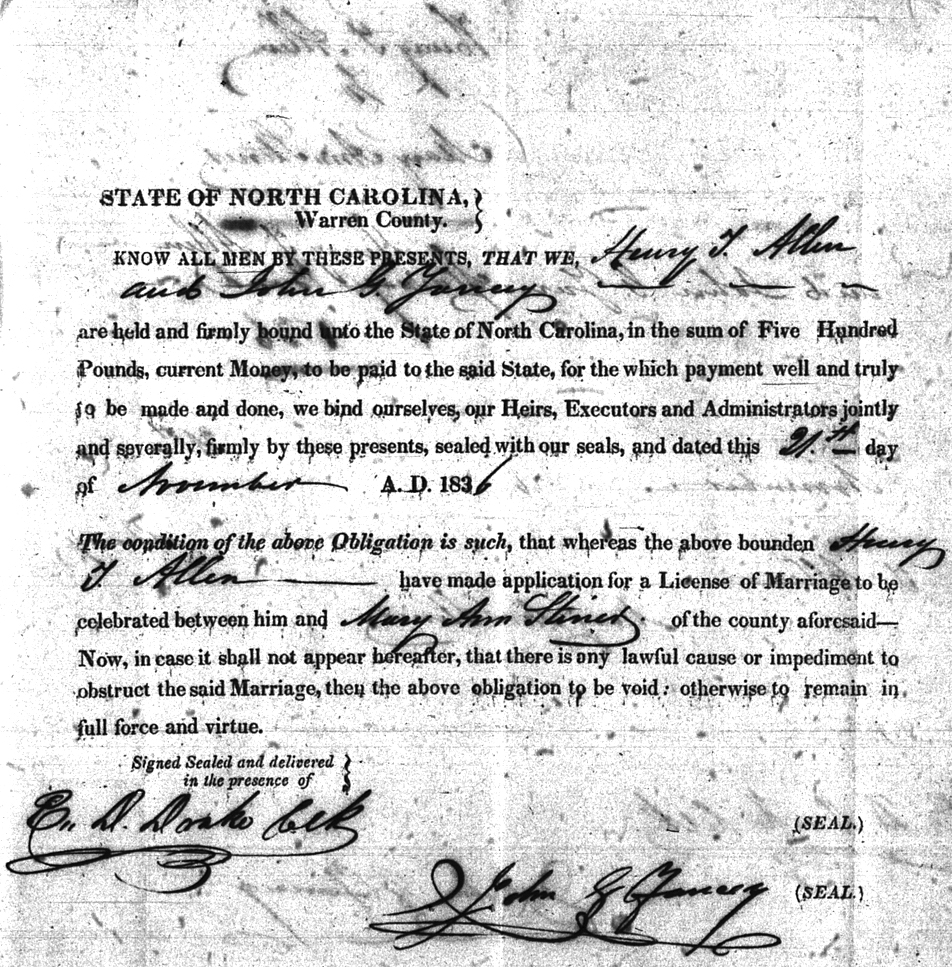 STATE OF NORTH CAROLINA,
Warren County.
KNOW ALL MEN BY THESE PRESENTS, THAT WE, Henry T. Allen
and John G. Yancey
are held and firmly bound unto the State of North Carolina, in the sum of Five Hundred
Pounds, current Money, to be paid to the said State, for the which payment well and truly
to be made and done, we bind ourselves, our Heirs, Executors and Administrators jointly
and severally, firmly by these presents, sealed with our seals, and dated this 21.st day
of November A. D. 1836
The condition of the above Obligation is such, that whereas the above bounden Henry
T Allen have made application for a License of Marriage to be
celebrated between him and Mary Ann of the county aforesaid—
Now, in case it shall not appear hereafter, that there is any lawful cause or impediment to
obstruct the said Marriage, then the above obligation to be void: otherwise to remain in
full force and virtue.
Signed Sealed and delivered
in the presence of
E. D. Drake Clk
(SEAL.)
John G Yancey (SEAL.)